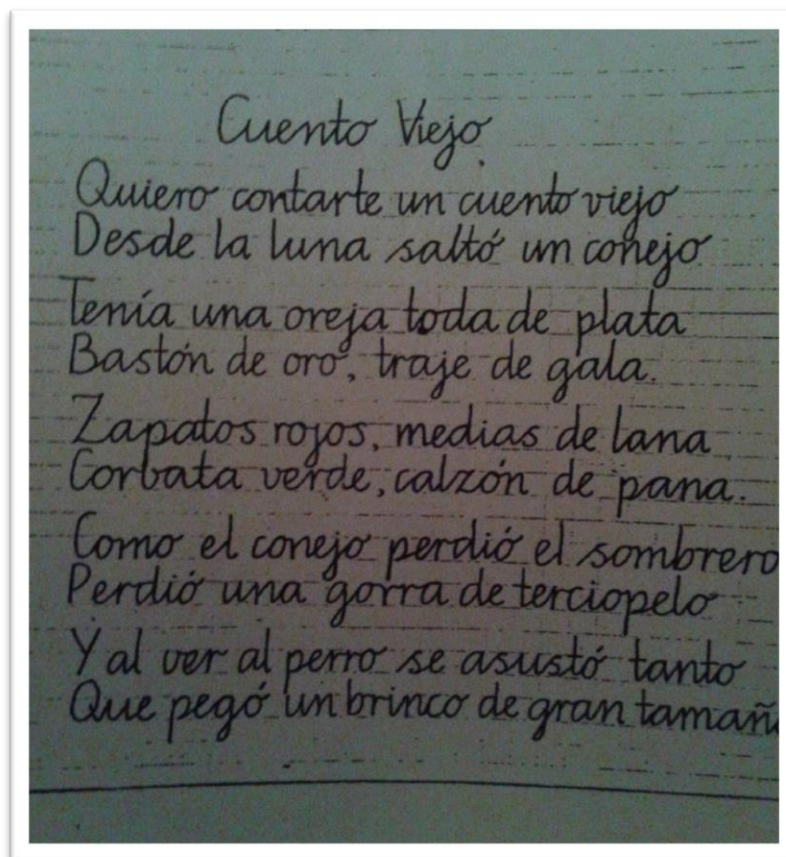 Cuento Viejo
Quiero contarte un cuento viejo
Desde la luna saltó un conejo
Tenía una oreja toda de plata
Bastón de oro, traje de gala.
Zapatos rojos, medias de lana
Corbata verde, calzón de pana.
Como el conejo perdió el sombrero
Perdió una gorra de terciopelo
Y al ver al perro se asustó tanto
Que pegó un brinco de gran tamañ